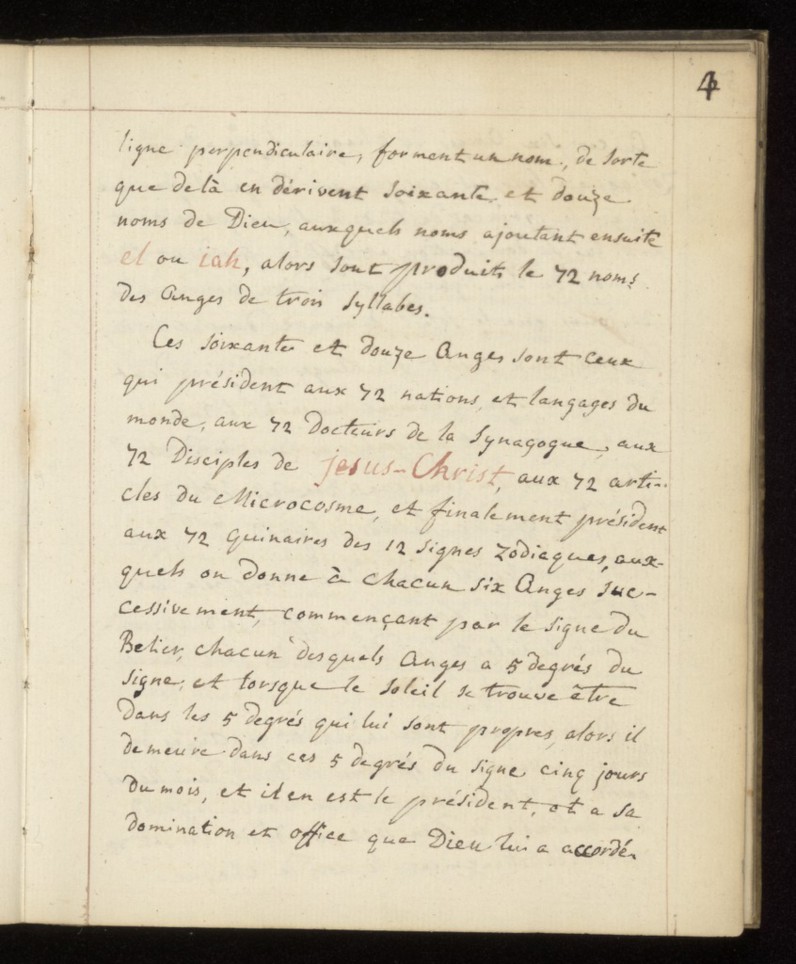 4
ligne perpendiculaire, forment un nom, de sorte
que de là en dérivent soixante et douze
noms de Dieu, auxquels noms ajoutant ensuite
el ou iah, alors sont produits le 72 noms
des Anges de trois syllabes.
Ces soixante et douze Anges sont ceux
qui président aux 72 nations, et langages du
monde, aux 72 Docteurs de la Synagogue, aux
72 Disciples de jesus-Christ, aux 72 arti-
cles du Microcosme, et finalement président
aux 72 Quinaires des 12 signes Zodiaques, aux-
quels on donne à chacun six Anges suc-
cessivement, commençant par le signe du
Belier, chacun desquels Anges a 5 degrés du
signe, et lorsque le soleil se trouve être
dans les 5 degrés qui lui sont propres, alors il
demeure dans ces 5 degrés du signe cinq jours
du mois, et il en est le président, et a sa
domination et office que Dieu lui a accordé.